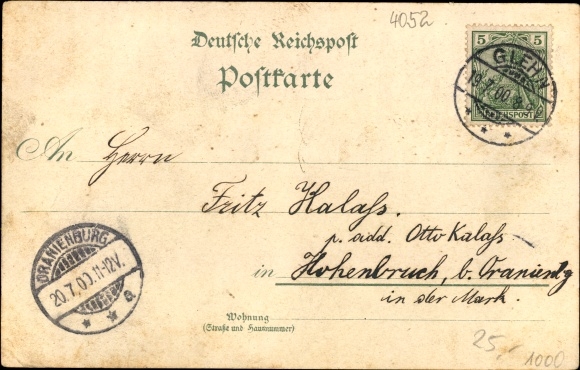 4052
Deutsche Reichspost
Postkarte
5 5
GLEHN
19.7.00
REICHSPOST
An Herrn
Fritz Kalaß.
p. add. Otto Kalaß
in Hohenbruch, b. Oranienbg
in der Mark.
ORANIENBURG
20.7.00.11-12V.
* * a
Wohnung
(Straße und Hausnummer)
25,-
1000